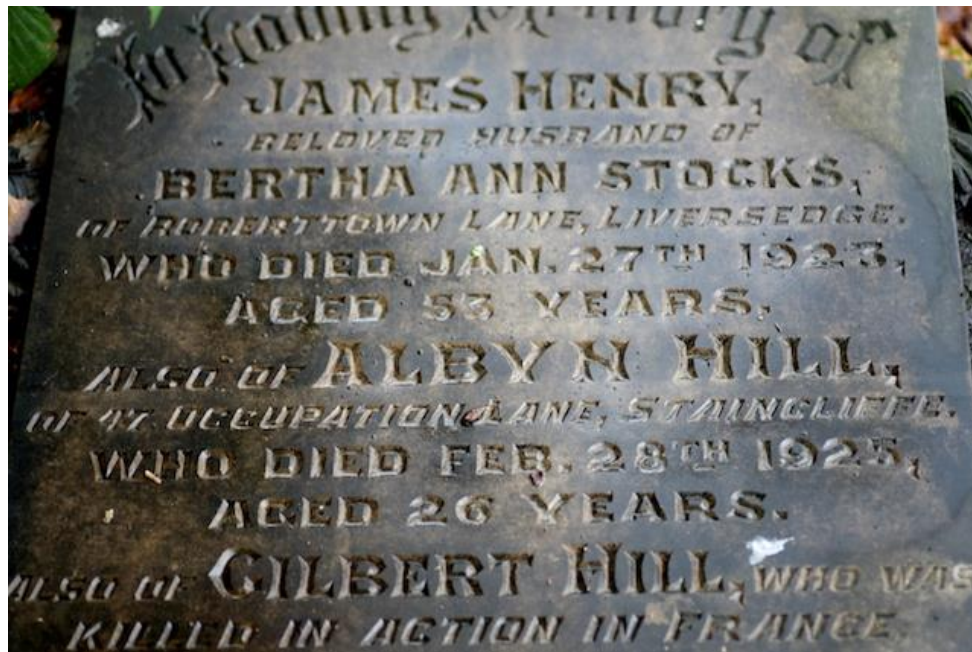 In Loving Memory of
JAMES HENRY,
BELOVED HUSBAND OF
BERTHA ANN STOCKS,
OF ROBERTTOWN LANE, LIVERSEDGE.
WHO DIED JAN. 27TH 1923,
AGED 53 YEARS.
ALSO OF ALBYN HILL,
OF 47. OCCUPATION LANE, STAINCLIFFE.
WHO DIED FEB. 28TH 1925,
AGED 26 YEARS.
ALSO OF GILBERT HILL, WHO WAS
KILLED IN ACTION IN FRANCE.